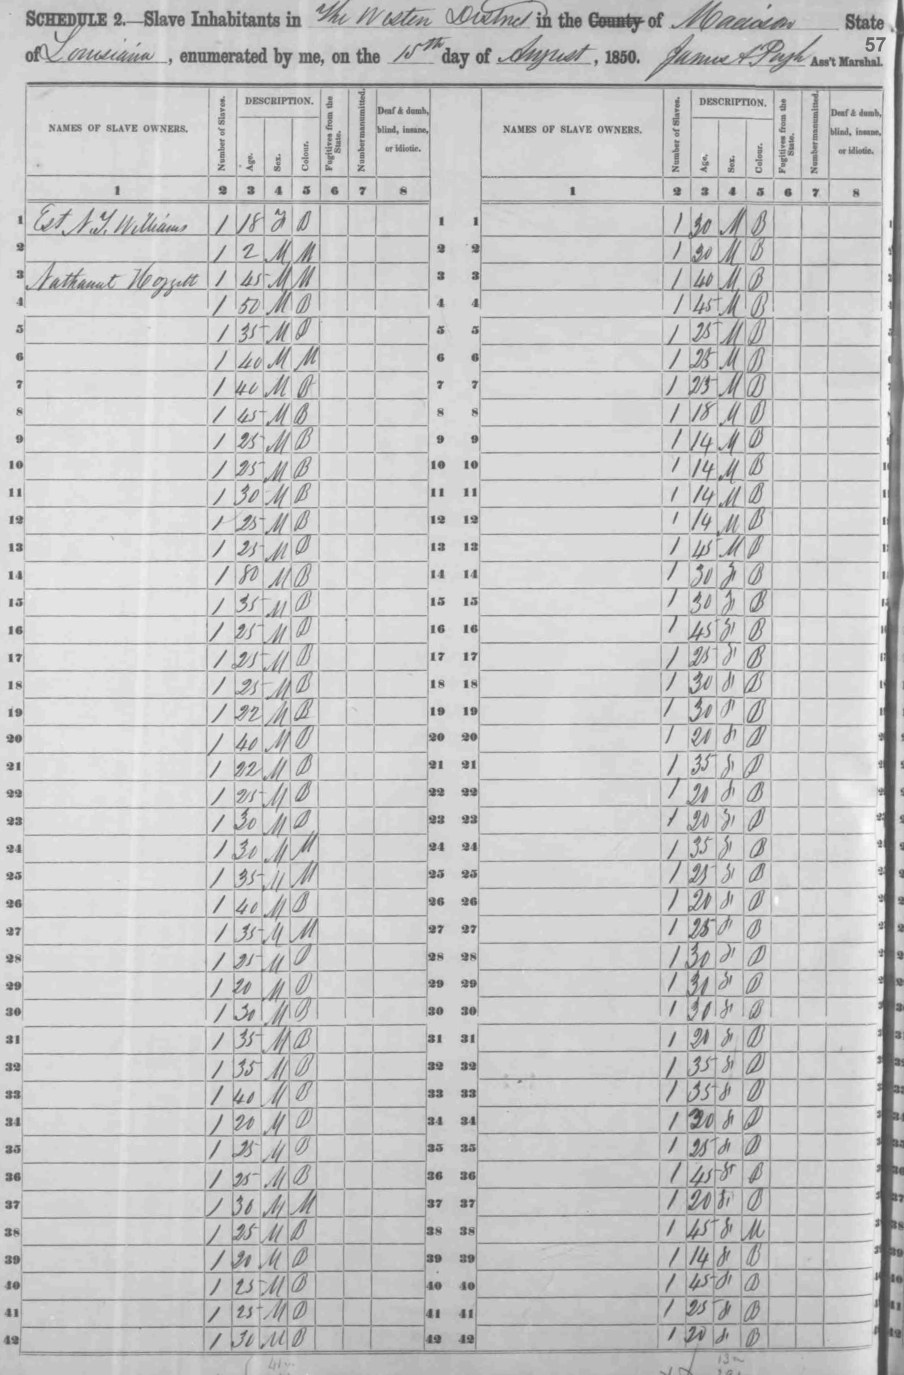 SCHEDULE 2.—Slave Inhabitants in The Western District in the County of Madison State
57
of Louisiana, enumerated by me, on the 15th day of August, 1850. James A Pugh Ass't Marshal.
NAMES OF SLAVE OWNERS. Number of Slaves. DESCRIPTION. Age. Sex. Colour. Fugitives from the State. Number manumitted. Deaf & dumb, blind, insane, or idiotic. NAMES OF SLAVE OWNERS. Number of Slaves. DESCRIPTION. Age. Sex. Colour. Fugitives from the State. Number manumitted. Deaf & dumb, blind, insane, or idiotic.
1 2 3 4 5 6 7 8 1 2 3 4 5 6 7 8
1 Est N. Y. Williams 1 18 F B 1 1 1 30 M B
2 1 2 M M 2 2 1 30 M B
3 Nathaniel Hoggett 1 45 M M 3 3 1 40 M B
4 1 50 M B 4 4 1 45 M B
5 1 35 M B 5 5 1 25 M B
6 1 40 M M 6 6 1 25 M B
7 1 40 M B 7 7 1 25 M B
8 1 45 M B 8 8 1 18 M B
9 1 25 M B 9 9 1 14 M B
10 1 25 M B 10 10 1 14 M B
11 1 30 M B 11 11 1 14 M B
12 1 25 M B 12 12 1 14 M B
13 1 25 M B 13 13 1 45 M B
14 1 80 M B 14 14 1 30 F B
15 1 35 M B 15 15 1 30 F B
16 1 25 M B 16 16 1 45 F B
17 1 25 M B 17 17 1 25 F B
18 1 25 M B 18 18 1 30 F B
19 1 22 M B 19 19 1 30 F B
20 1 40 M B 20 20 1 20 F B
21 1 22 M B 21 21 1 35 F B
22 1 25 M B 22 22 1 20 F B
23 1 30 M B 23 23 1 20 F B
24 1 30 M M 24 24 1 35 F B
25 1 35 M M 25 25 1 25 F B
26 1 40 M B 26 26 1 20 F B
27 1 35 M M 27 27 1 25 F B
28 1 25 M B 28 28 1 30 F B
29 1 20 M B 29 29 1 30 F B
30 1 30 M B 30 30 1 30 F B
31 1 35 M B 31 31 1 20 F B
32 1 35 M B 32 32 1 35 F B
33 1 40 M B 33 33 1 35 F B
34 1 20 M B 34 34 1 30 F B
35 1 25 M B 35 35 1 25 F B
36 1 25 M B 36 36 1 45 F B
37 1 30 M M 37 37 1 20 F B
38 1 25 M B 38 38 1 45 F M
39 1 20 M B 39 39 1 14 F B
40 1 25 M B 40 40 1 45 F B
41 1 25 M B 41 41 1 25 F B
42 1 30 M B 42 42 1 20 F B